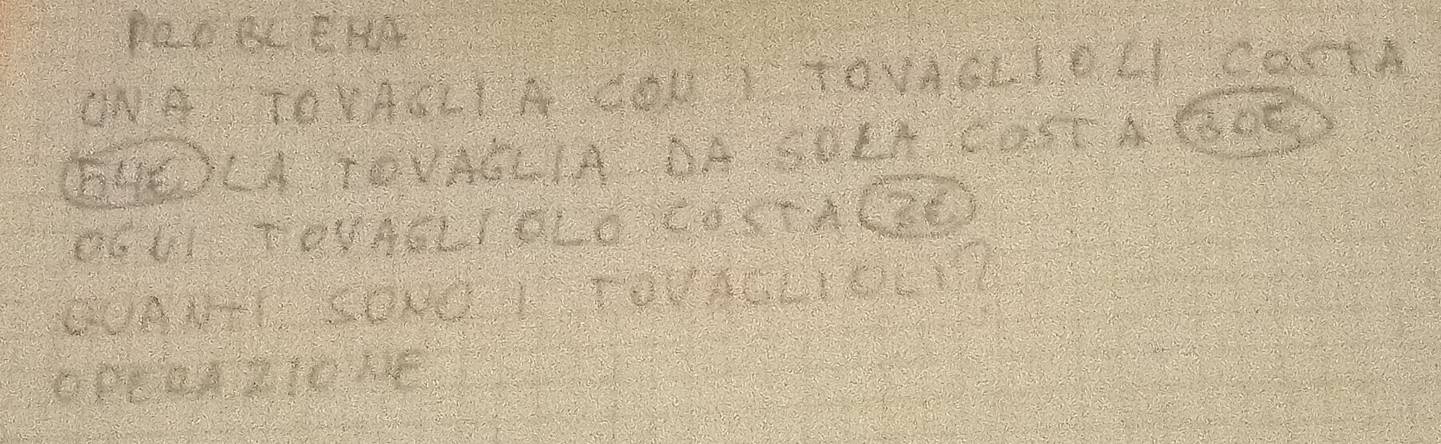 PROBLEMA
UNA TOVAGLIA CON I TOVAGLIOLI COSTA
54€ LA TOVAGLIA DA SOLA COSTA 30€
OGNI TOVAGLIOLO COSTA 3€
QUANTI SONO I TOVAGLIOLI?
OPERAZIONE